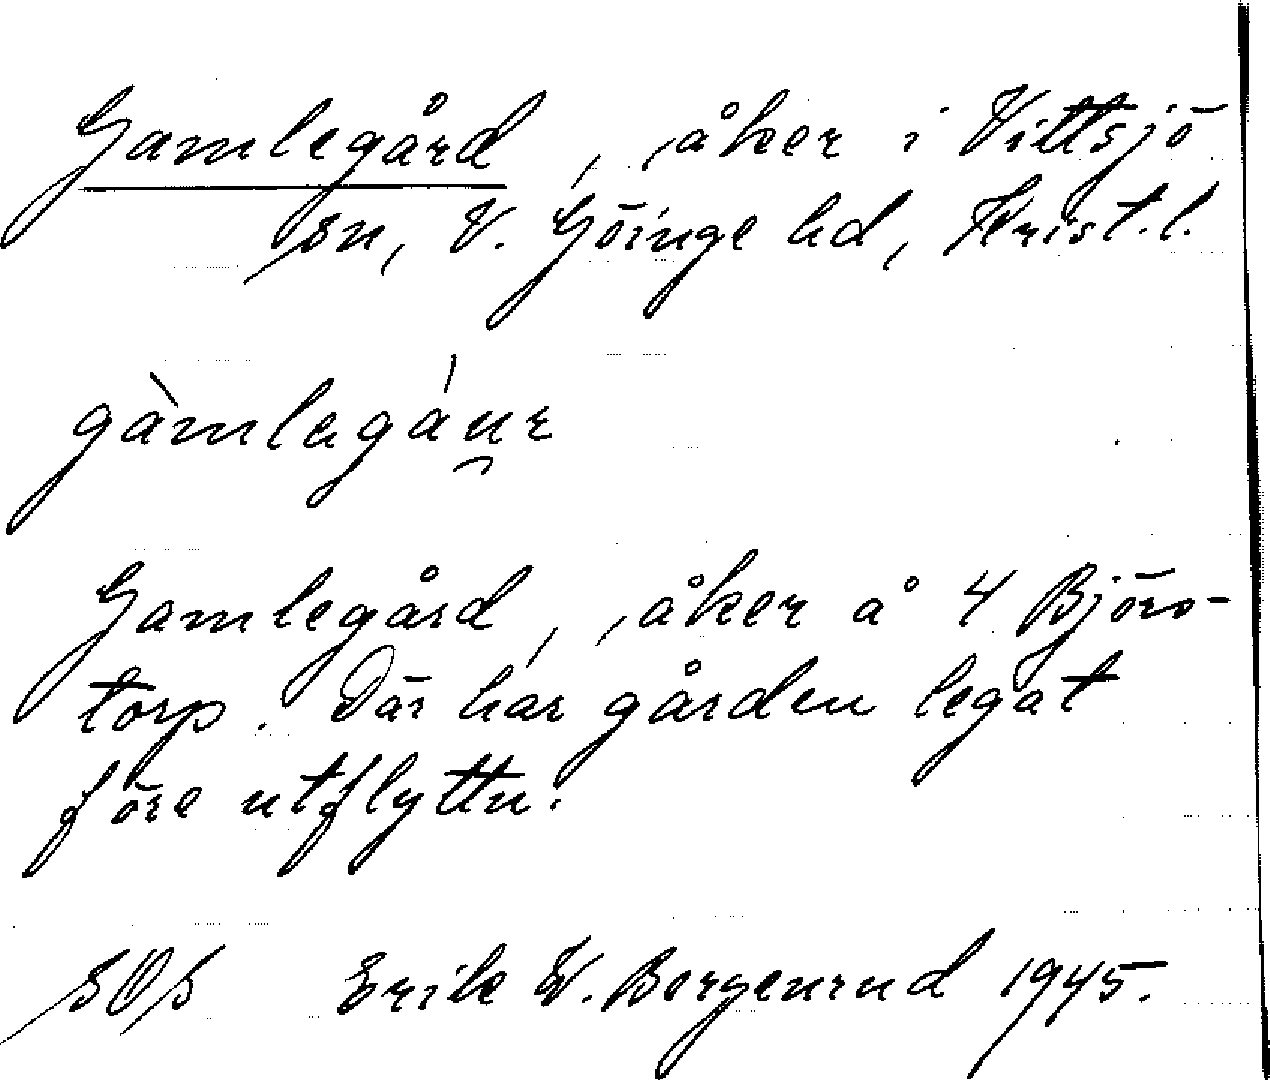 Gamlegård, åker i Vittsjö
sn, V. Göinge hd, Krist. l.
gàmlagáu̯r
Gamlegård, åker å 4 Björs-
torp. Där har gården legat
före utflyttn.
SOS Erik W. Bergenrud 1945.